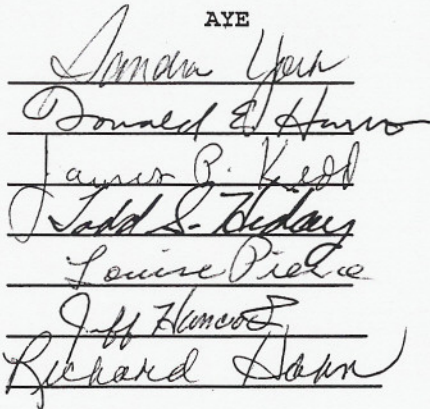 AYE
Sandra York
Donald E. Harris
James R. Kidd
Todd S. Hiday
Louise Pierce
Jeff Hancock
Richard Hahn